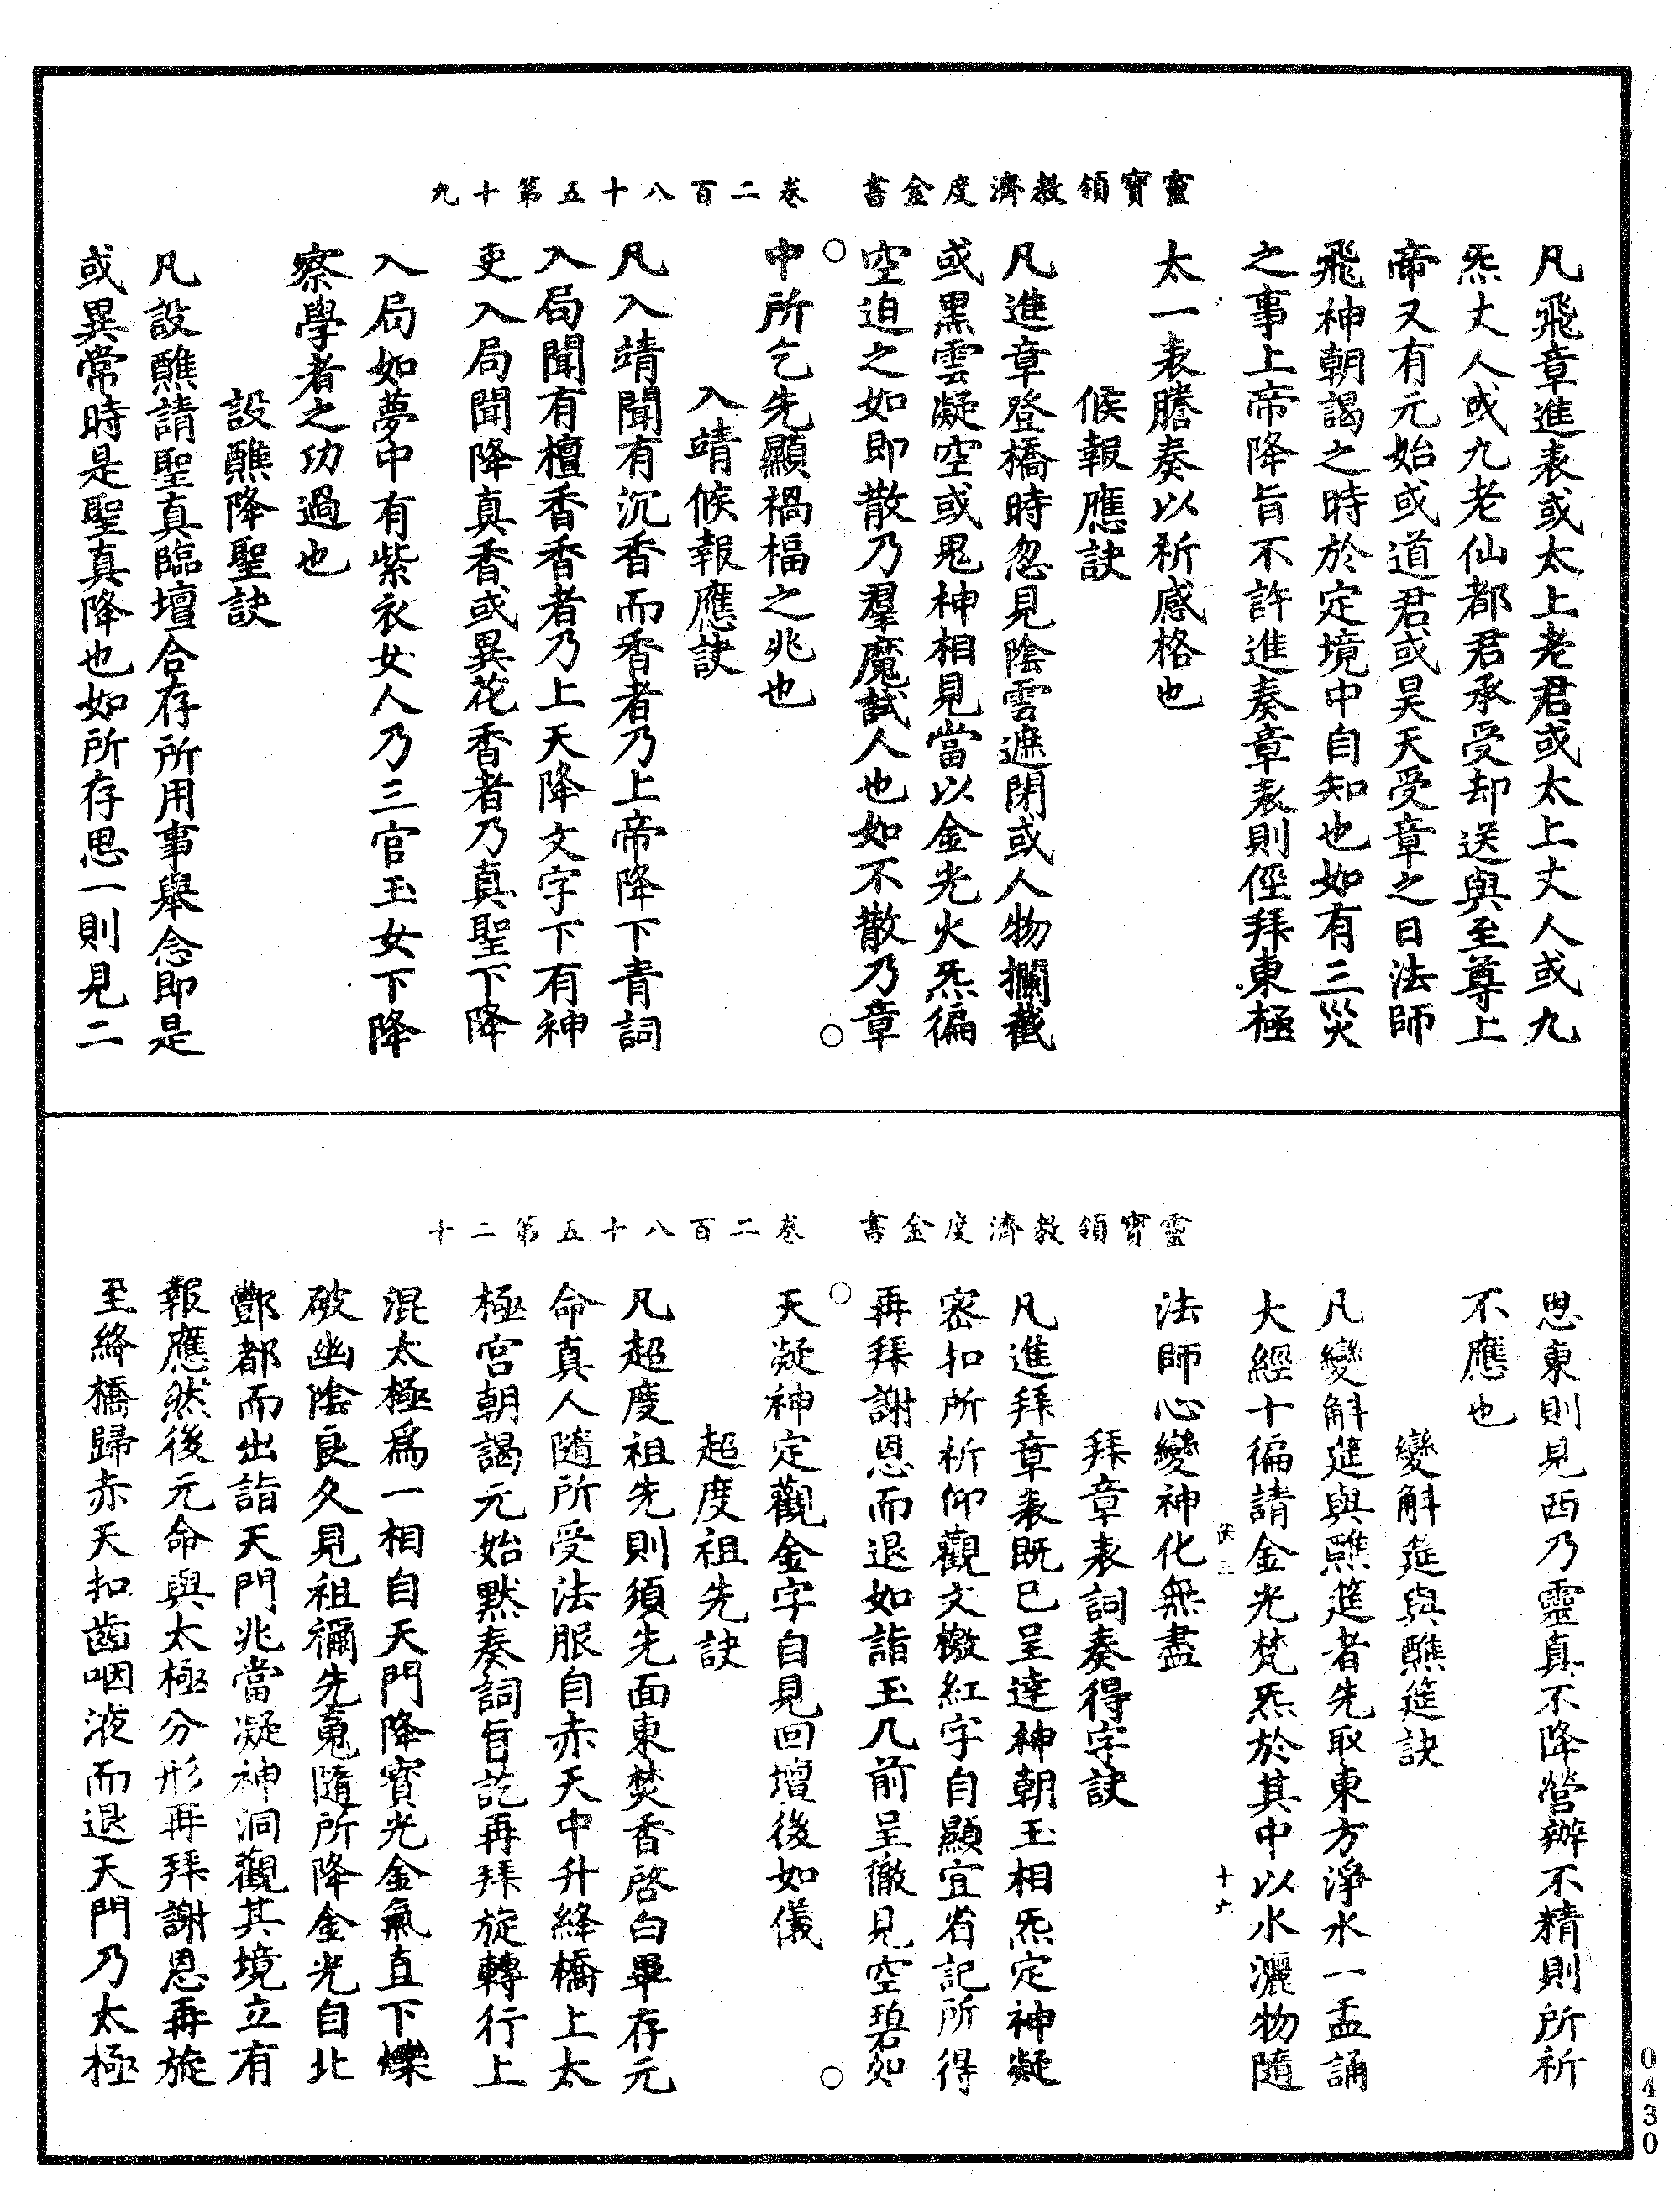 靈寶領教濟度金書　卷二百八十五第十九
凡飛章進表或太上老君或太上丈人或九
炁丈人或九老仙都君承受却送與至尊上
帝又有元始或道君或昊天受章之日法師
飛神朝謁之時於定境中自知也如有三災
之事上帝降旨不許進奏章表則徑拜東極
太一表謄奏以祈感格也
候報應訣
凡進章登橋時忽見陰雲遮閉或人物攔截
或黑雲凝空或鬼神相見當以金光火炁徧
空迫之如即散乃羣魔試人也如不散乃章
中所乞先顯禍福之兆也
入靖候報應訣
凡入靖聞有沉香而香者乃上帝降下青詞
入局聞有檀香香者乃上天降文字下有神
吏入局聞降真香或異花香者乃真聖下降
入局如夢中有紫衣女人乃三官玉女下降
察學者之功過也
設醮降聖訣
凡設醮請聖真臨壇合存所用事舉念即是
或異常時是聖真降也如所存思一則見二
靈寶領教濟度金書　卷二百八十五第二十
思東則見西乃靈真不降營辦不精則所祈
不應也
變斛筵與醮筵訣
凡變斛筵與醮筵者先取東方淨水一盂誦
大經十徧請金光梵炁於其中以水灑物隨
法師心變神化無盡
拜章表詞奏得字訣
凡進拜章表既已呈達神朝玉相炁定神凝
密扣所祈仰觀文檄紅字自顯宜省記所得
再拜謝恩而退如詣玉几前呈徹見空碧如
天凝神定觀金字自見回壇後如儀
超度祖先訣
凡超度祖先則須先面東焚香啓白畢存元
命真人隨所受法服自赤天中升絳橋上太
極宮朝謁元始默奏詞旨訖再拜旋轉行上
混太極爲一相自天門降寶光金氣直下爍
破幽陰良久見祖禰先䰟隨所降金光自北
酆都而出詣天門兆當凝神洞觀其境立有
報應然後元命與太極分形再拜謝恩再旋
至絳橋歸赤天扣齒咽液而退天門乃太極
0430